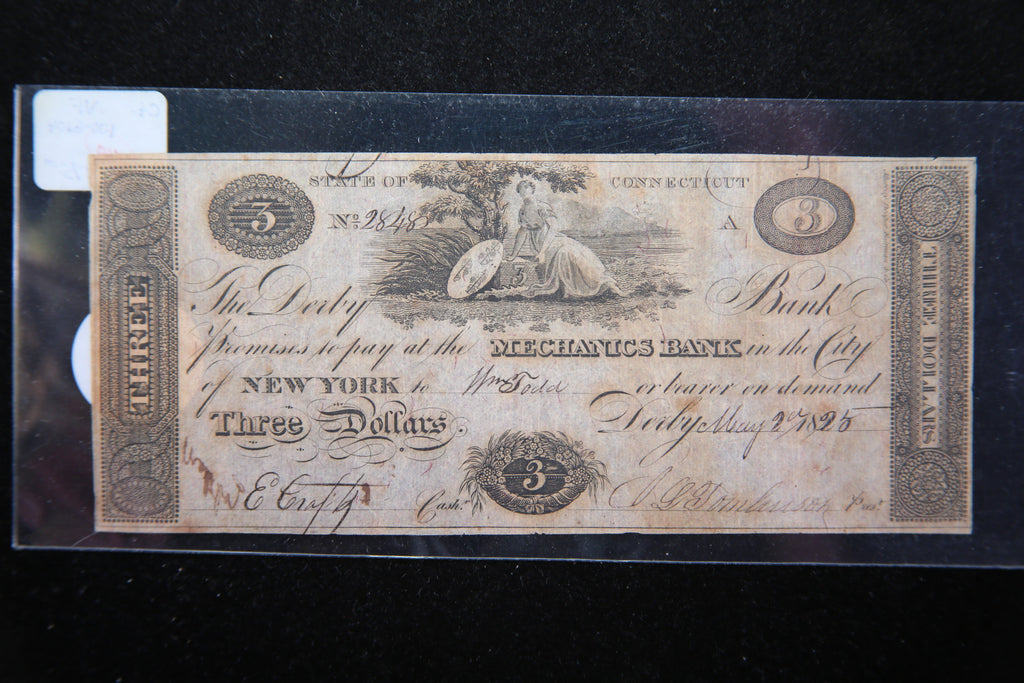 STATE OF CONNECTICUT
3 No. 2848 A 3
3
The Derby Bank
Promises to pay at the MECHANICS BANK in the City
of NEW YORK to Wm Todd or bearer on demand
Three Dollars Derby May 2d 1825
Cash. 3 Tomlinson Prest
THREE
THREE DOLLARS